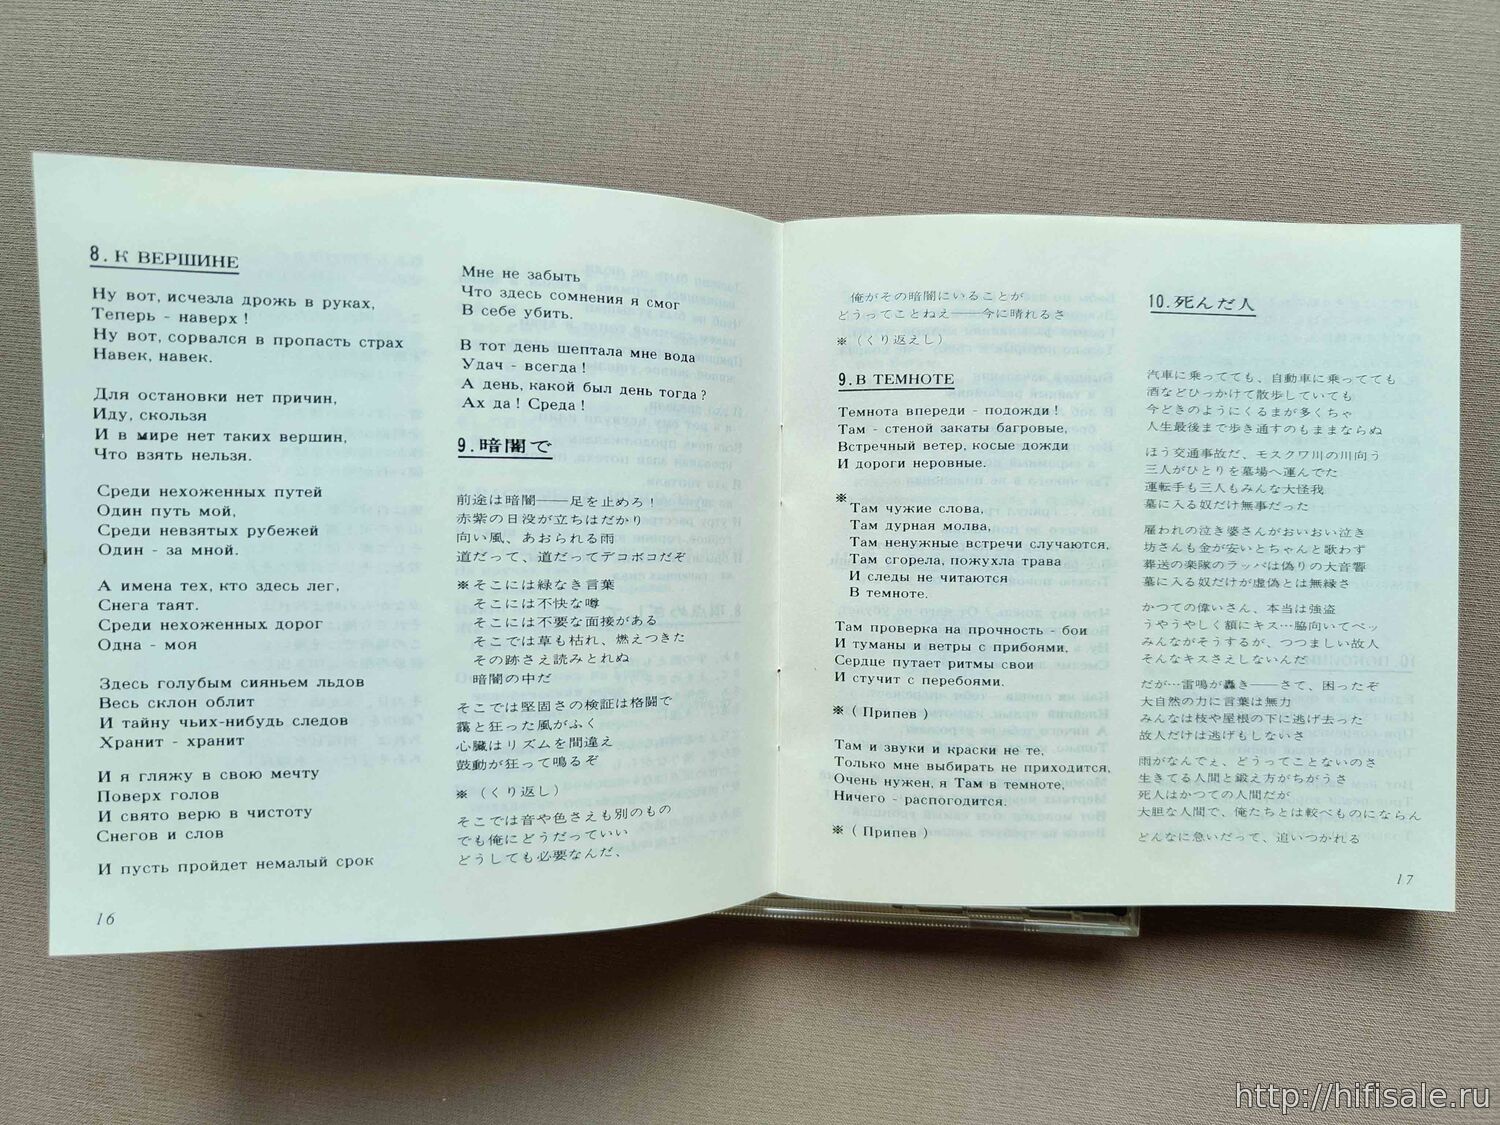 8. К ВЕРШИНЕ
Ну вот, исчезла дрожь в руках,
Теперь - наверх !
Ну вот, сорвался в пропасть страх
Навек, навек.
Для остановки нет причин,
Иду, скользя
И в мире нет таких вершин,
Что взять нельзя.
Среди нехоженных путей
Один путь мой,
Среди невзятых рубежей
Один - за мной.
А имена тех, кто здесь лег,
Снега таят.
Среди нехоженных дорог
Одна - моя
Здесь голубым сияньем льдов
Весь склон облит
И тайну чьих-нибудь следов
Хранит - хранит
И я гляжу в свою мечту
Поверх голов
И свято верю в чистоту
Снегов и слов
И пусть пройдет немалый срок
16
Мне не забыть
Что здесь сомнения я смог
В себе убить.
В тот день шептала мне вода
Удач - всегда !
А день, какой был день тогда ?
Ах да ! Среда !
9. 暗闇で
前途は暗闇――足を止めろ！
赤紫の日没が立ちはだかり
向い風、あおられる雨
道だって、道だってデコボコだぞ
※ そこには緑なき言葉
そこには不快な噂
そこには不要な面接がある
そこでは草も枯れ、燃えつきた
その跡さえ読みとれぬ
暗闇の中だ
そこでは堅固さの検証は格闘で
靄と狂った風がふく
心臓はリズムを間違え
鼓動が狂って鳴るぞ
※ （くり返し）
そこでは音や色さえも別のもの
でも俺にどうだっていい
どうしても必要なんだ、
俺がその暗闇にいることが
どうってことねえ――今に晴れるさ
※ （くり返えし）
9. В ТЕМНОТЕ
Темнота впереди - подожди !
Там - стеной закаты багровые,
Встречный ветер, косые дожди
И дороги неровные.
※
Там чужие слова,
Там дурная молва,
Там ненужные встречи случаются,
Там сгорела, пожухла трава
И следы не читаются
В темноте.
Там проверка на прочность - бои
И туманы и ветры с прибоями,
Сердце путает ритмы свои
И стучит с перебоями.
※ ( Припев )
Там и звуки и краски не те,
Только мне выбирать не приходится,
Очень нужен, я Там в темноте,
Ничего - распогодится.
※ ( Припев )
10. 死んだ人
汽車に乗ってても、自動車に乗ってても
酒などひっかけて散歩していても
今どきのようにくるまが多くちゃ
人生最後まで歩き通すのもままならぬ
ほう交通事故だ、モスクワ川の川向う
三人がひとりを墓場へ運んでた
運転手も三人もみんな大怪我
墓に入る奴だけ無事だった
雇われの泣き婆さんがおいおい泣き
坊さんも金が安いとちゃんと歌わず
葬送の楽隊のラッパは偽りの大音響
墓に入る奴だけが虚偽とは無縁さ
かつての偉いさん、本当は強盗
うやうやしく額にキス…脇向いてペッ
みんながそうするが、つつましい故人
そんなキスさえしないんだ
だが…雷鳴が轟き――さて、困ったぞ
大自然の力に言葉は無力
みんなは枝や屋根の下に逃げ去った
故人だけは逃げもしないさ
雨がなんでぇ、どうってことないのさ
生きてる人間と鍛え方がちがうさ
死人はかつての人間だが
大胆な人間で、俺たちとは較べものにならん
どんなに急いだって、追いつかれる
17
http://hifisale.ru